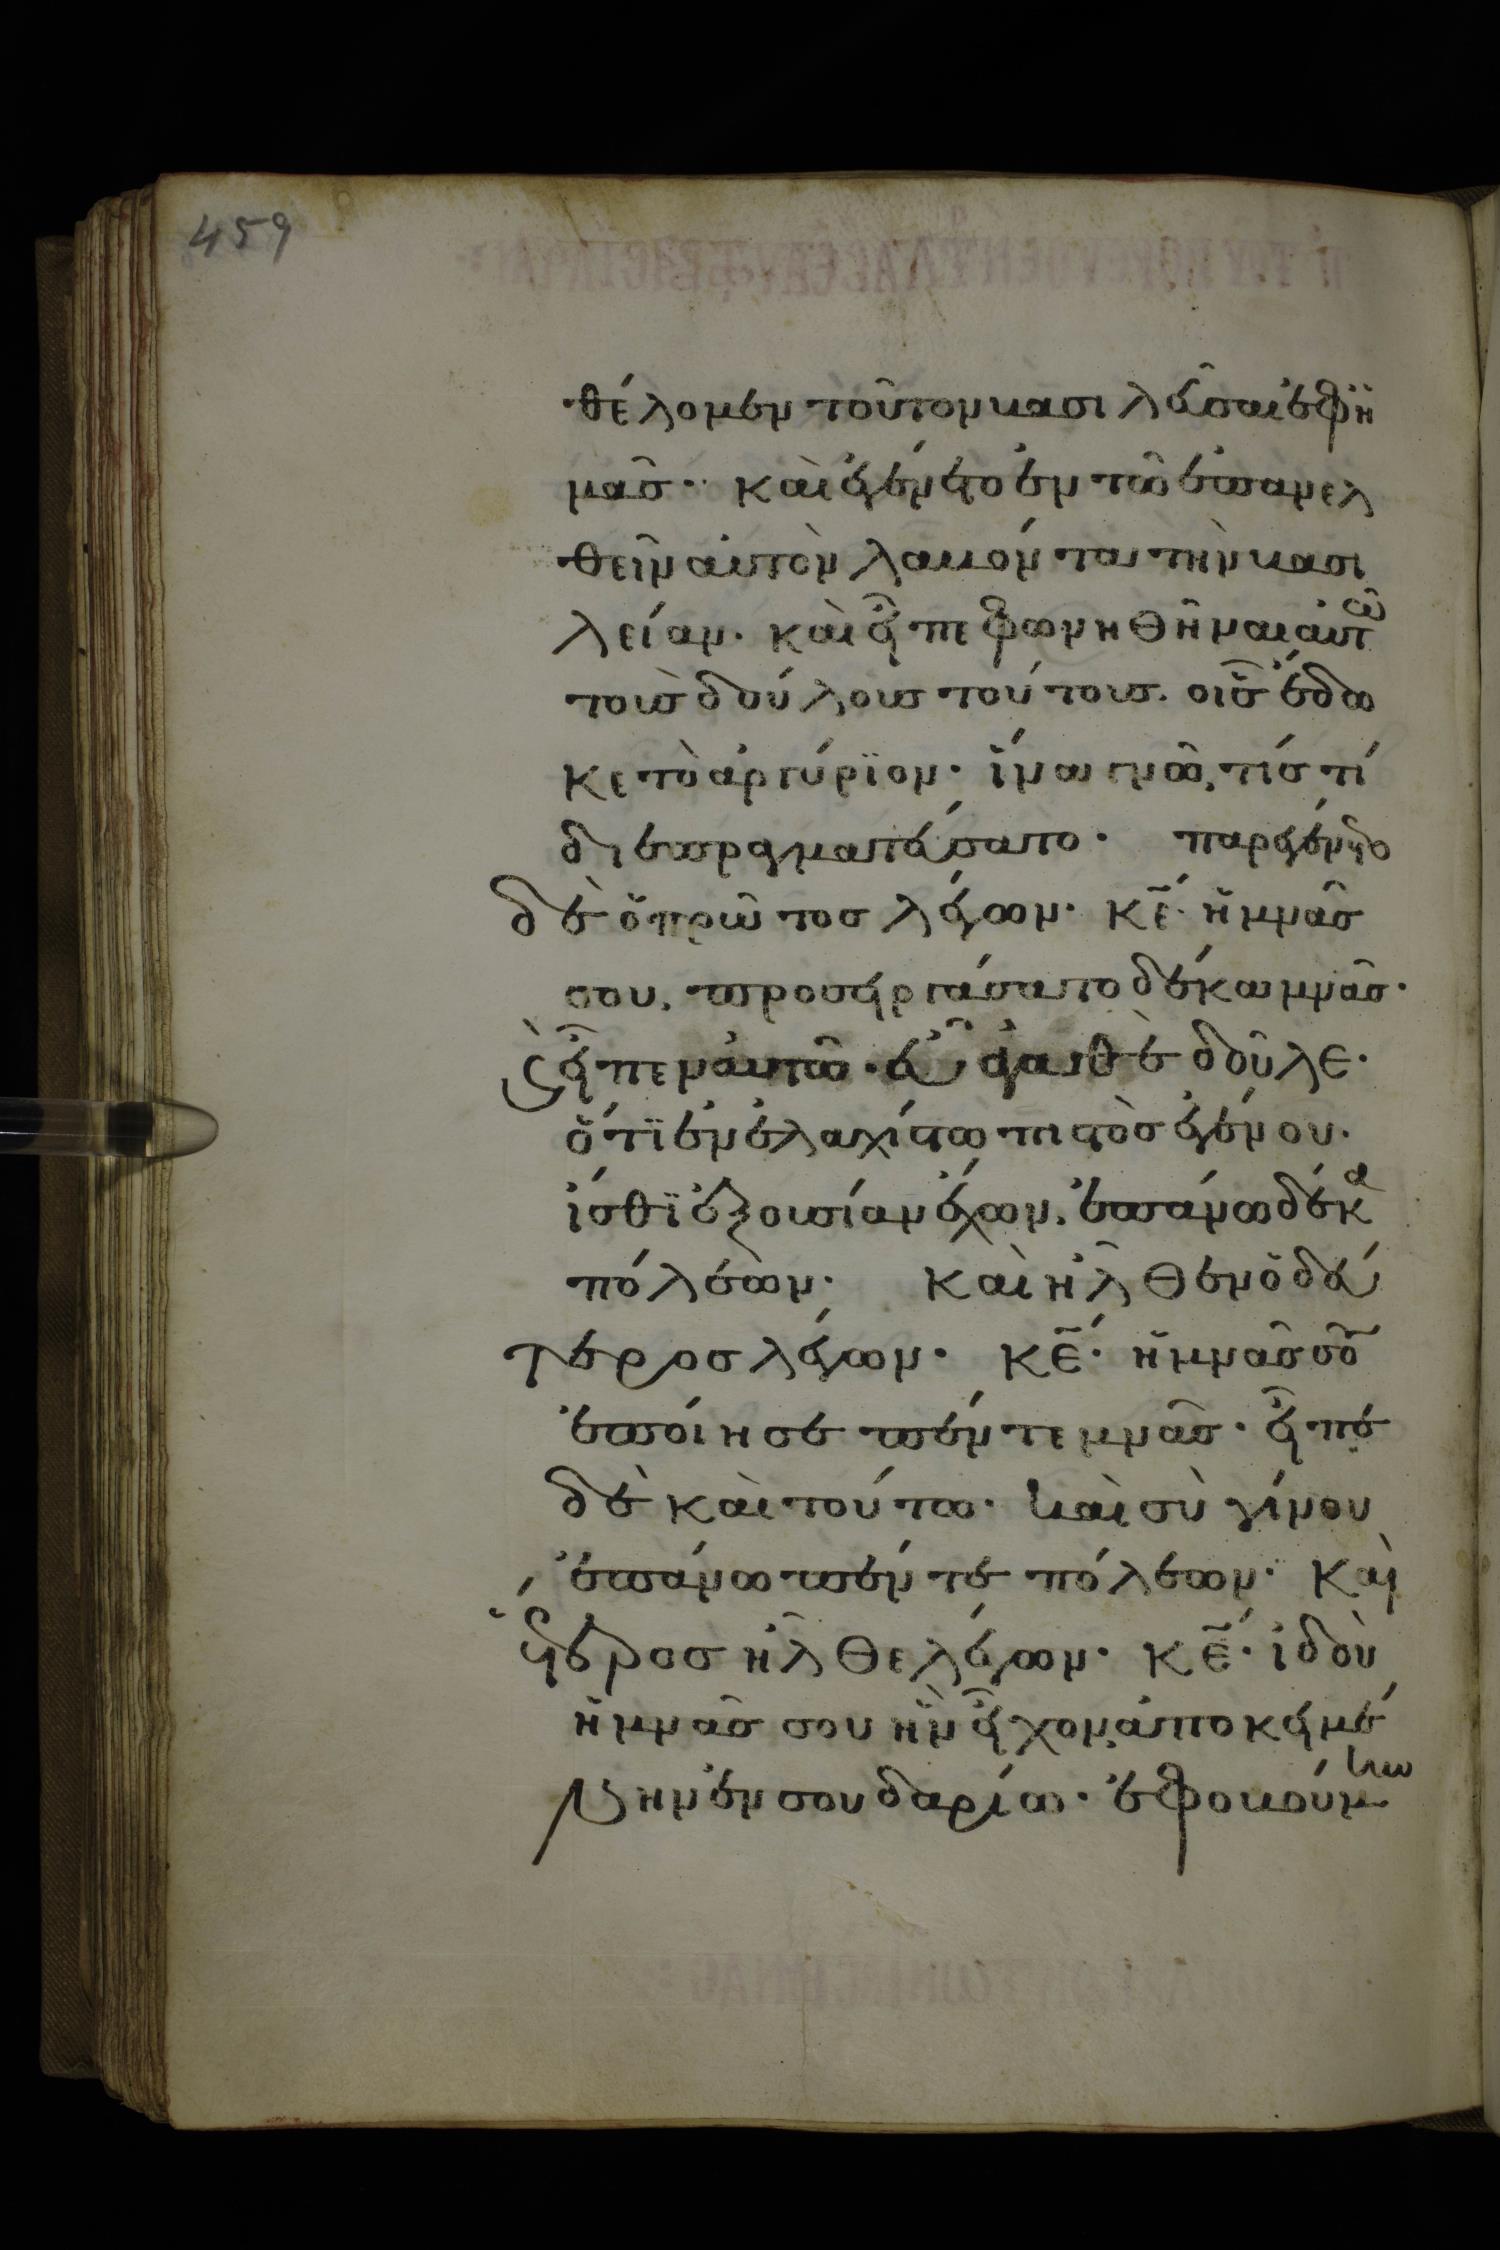 459
θέλομεν τοῦτον βασιλεῦσαι ἐφ ἡ
μᾶσ· καὶ ἐγένετο ἐν τῶ ἐπανελ
θεῖν αὐτὸν λαβόντα τὴν βασι
λείαν· καὶ εἶπε φωνηθῆναι αὐτῶ
τοὺσ δούλουσ τούτουσ. οἷσ ἔδω
κε τὸ ἀργύρϊον· ἵνα γνῶ, τίσ τί
διεπραγματεύσατο· παρεγένετο
δὲ ὁ πρῶτοσ λέγων· κε̄· ἡ μνᾶσ
σου, προσειργάσατο δέκα μνᾶσ·
ϗ εἶπεν αὐτῶ· εὖ ἀγαθὲ δοῦλε·
ὅτϊ ἐν ἐλαχίστω πιστὸσ ἐγένου·
ἴσθϊ ἐξουσίαν ἔχων, ἐπάνω δέκα
πόλεων· καὶ ἦλθεν ὁ δεύ
τεροσ λέγων· κε̄· ἡ μνᾶσ σου
ἐποίησε πέντε μνᾶσ· εἶπε
δὲ καὶ τούτω· καὶ σὺ γίνου
ἐπάνω πέντε πόλεων· καὶ
ἕτεροσ ἦλθε λέγων· κε̄· ἰδοὺ
ἡ μνᾶσ σου ἣν εἶχον, ἀποκειμέ
νην ἐν σουδαρίω· ἐφοβούμην